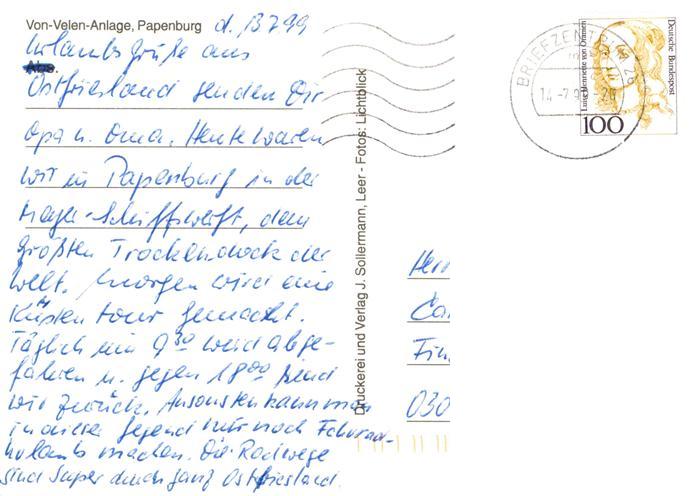 Von-Velen-Anlage, Papenburg d. 13799
Urlaubsgrüße aus
Ostfriesland senden Dir
Opa u. Oma. Heute waren
wir in Papenburg in der
Meyer-Schiffswerft, dem
größten Trockendock der
Welt. Morgen wird eine
Küstentour gemacht.
Täglich um 9 30 wird abge-
fahren u. gegen 18 00 sind
wir zurück. Ansonsten kann man
in dieser Gegend nur noch Fahrrad-
urlaub machen. Die Radwege
sind super durch ganz Ostfriesland.
Druckerei und Verlag J. Sollermann, Leer - Fotos: Lichtblick
BRIEFZENTR
26
14.-7.9
Luise Henriette von Oranien
Deutsche Bundespost
100
Herr
Ca
Fin
030